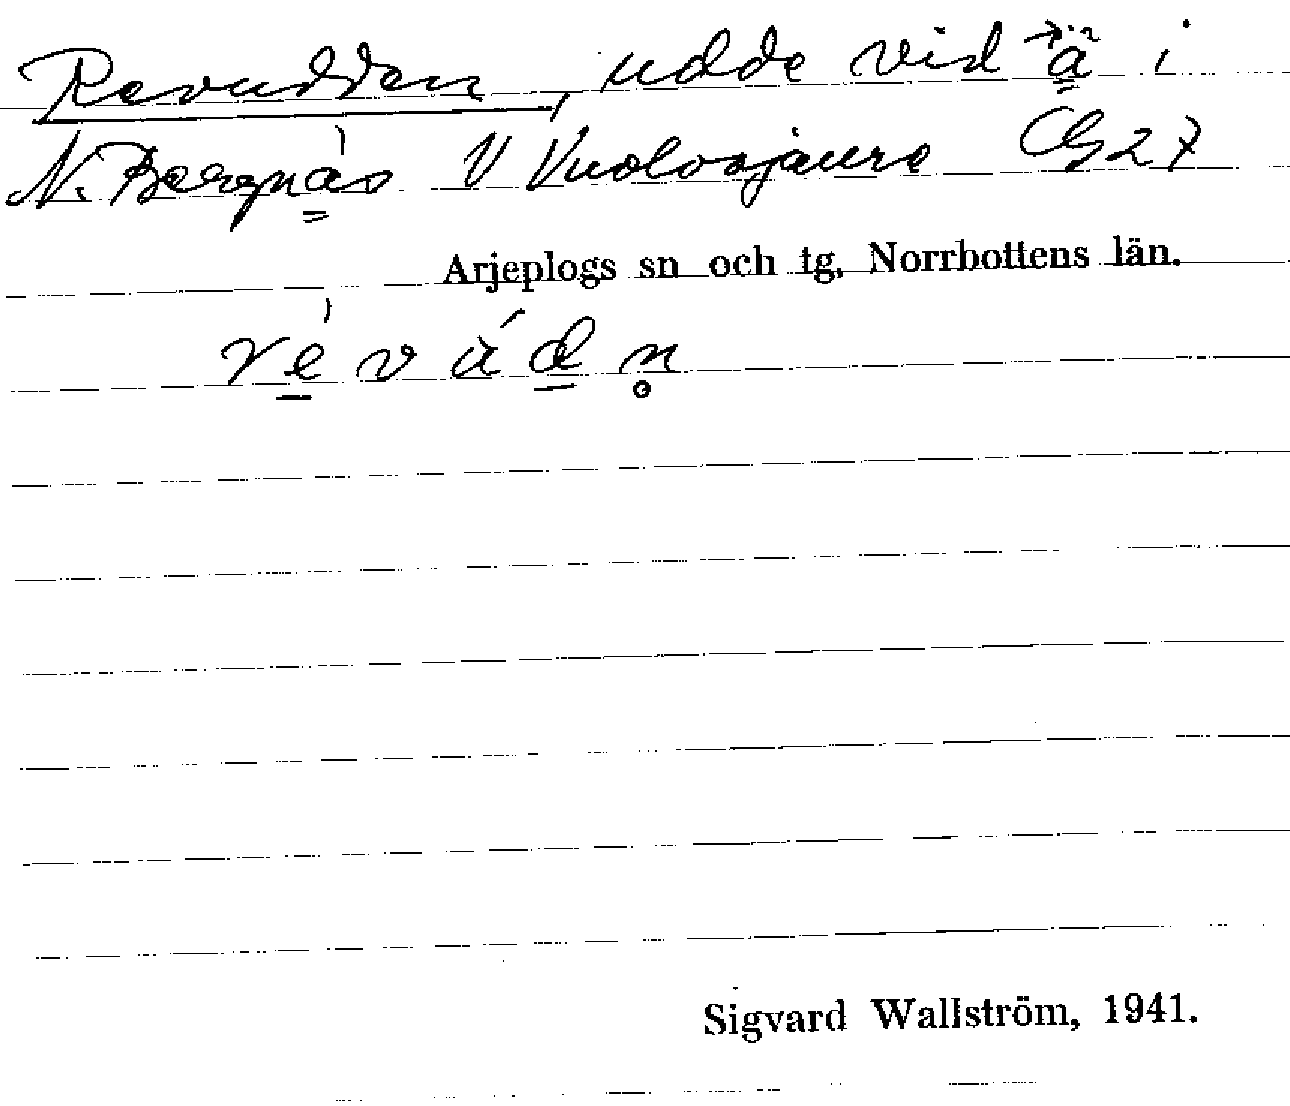 Revudden, udde vid å i
N. Bergnäs V Vuolosjaure G27
Arjeplogs sn och tg, Norrbottens län.
Sigvard Wallström, 1941.